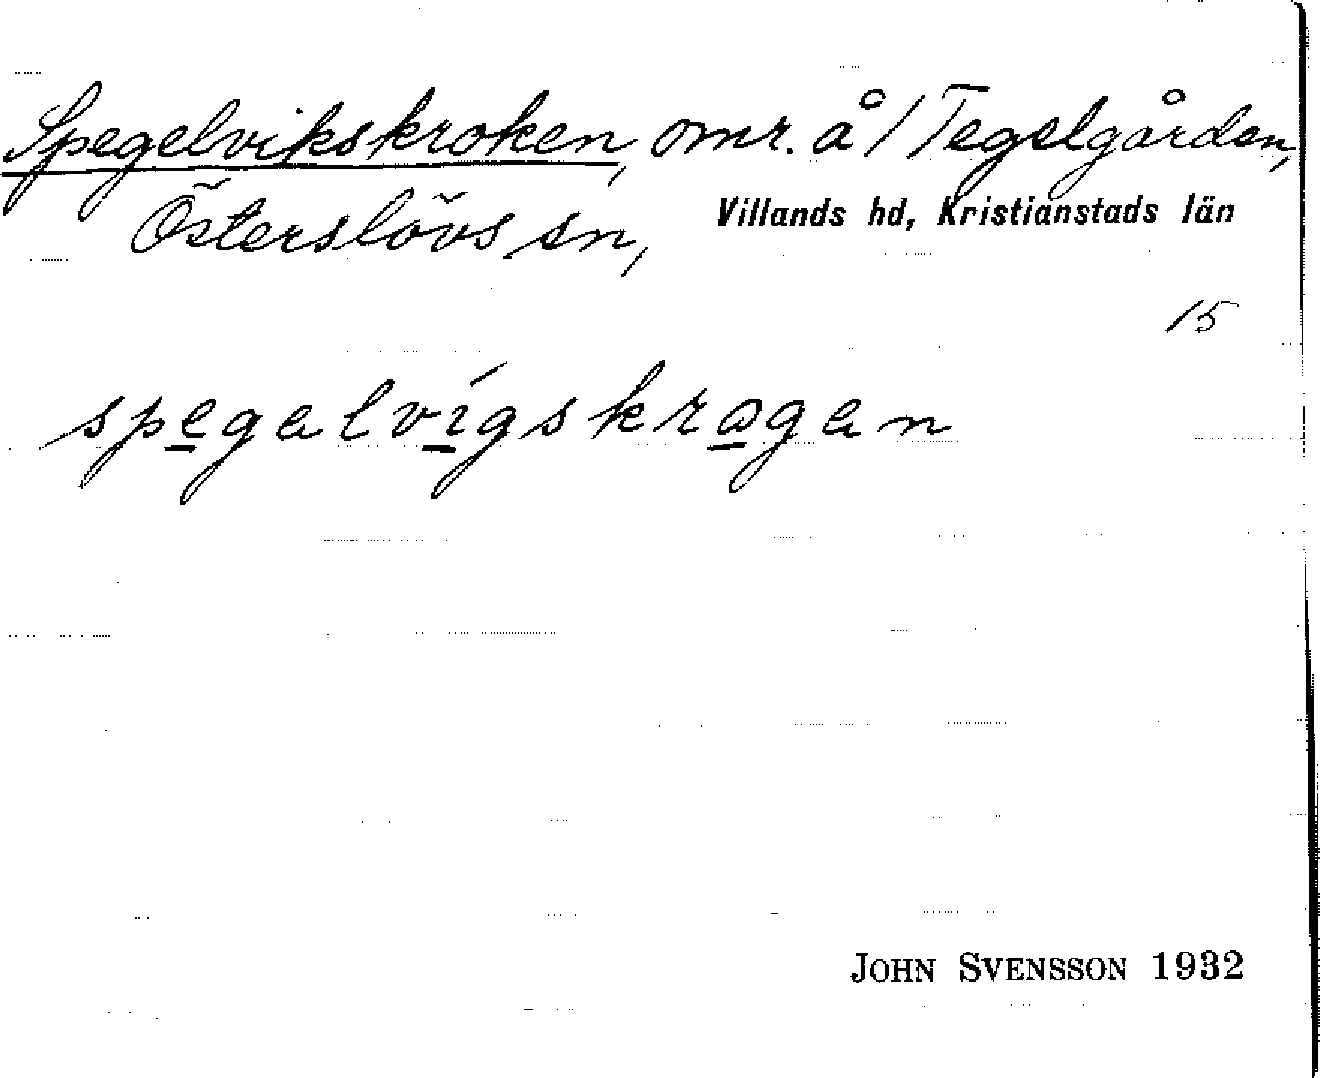 Spegelvikskroken, omr. å / Tegelgården,
Österslövs sn, Villands hd, Kristianstads län
15
spegalvígskrogan
JOHN SVENSSON 1932